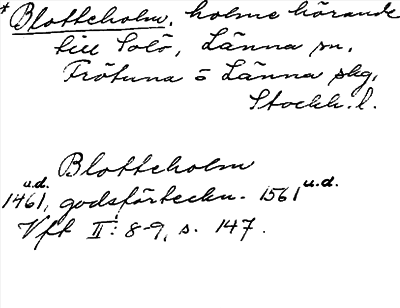 * Blotteholm, holme hörande
till Solö, Länna sn,
Frötuna o Länna skg,
Stockh. l.
Blotteholm
1461 u.d., godsförteckn. 1561 u.d.
Vft II: 8-9, s. 147.